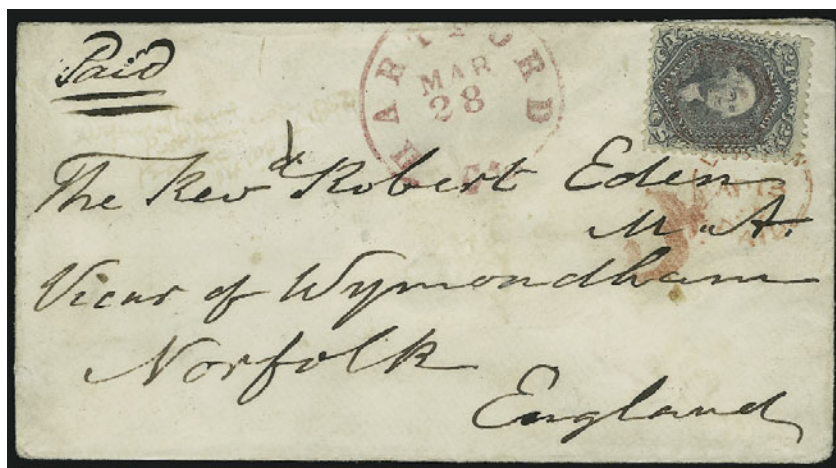 Paid
HARTFORD
MAR
28
The Revd Robert Eden
M.A.
Vicar of Wymondham
Norfolk
England